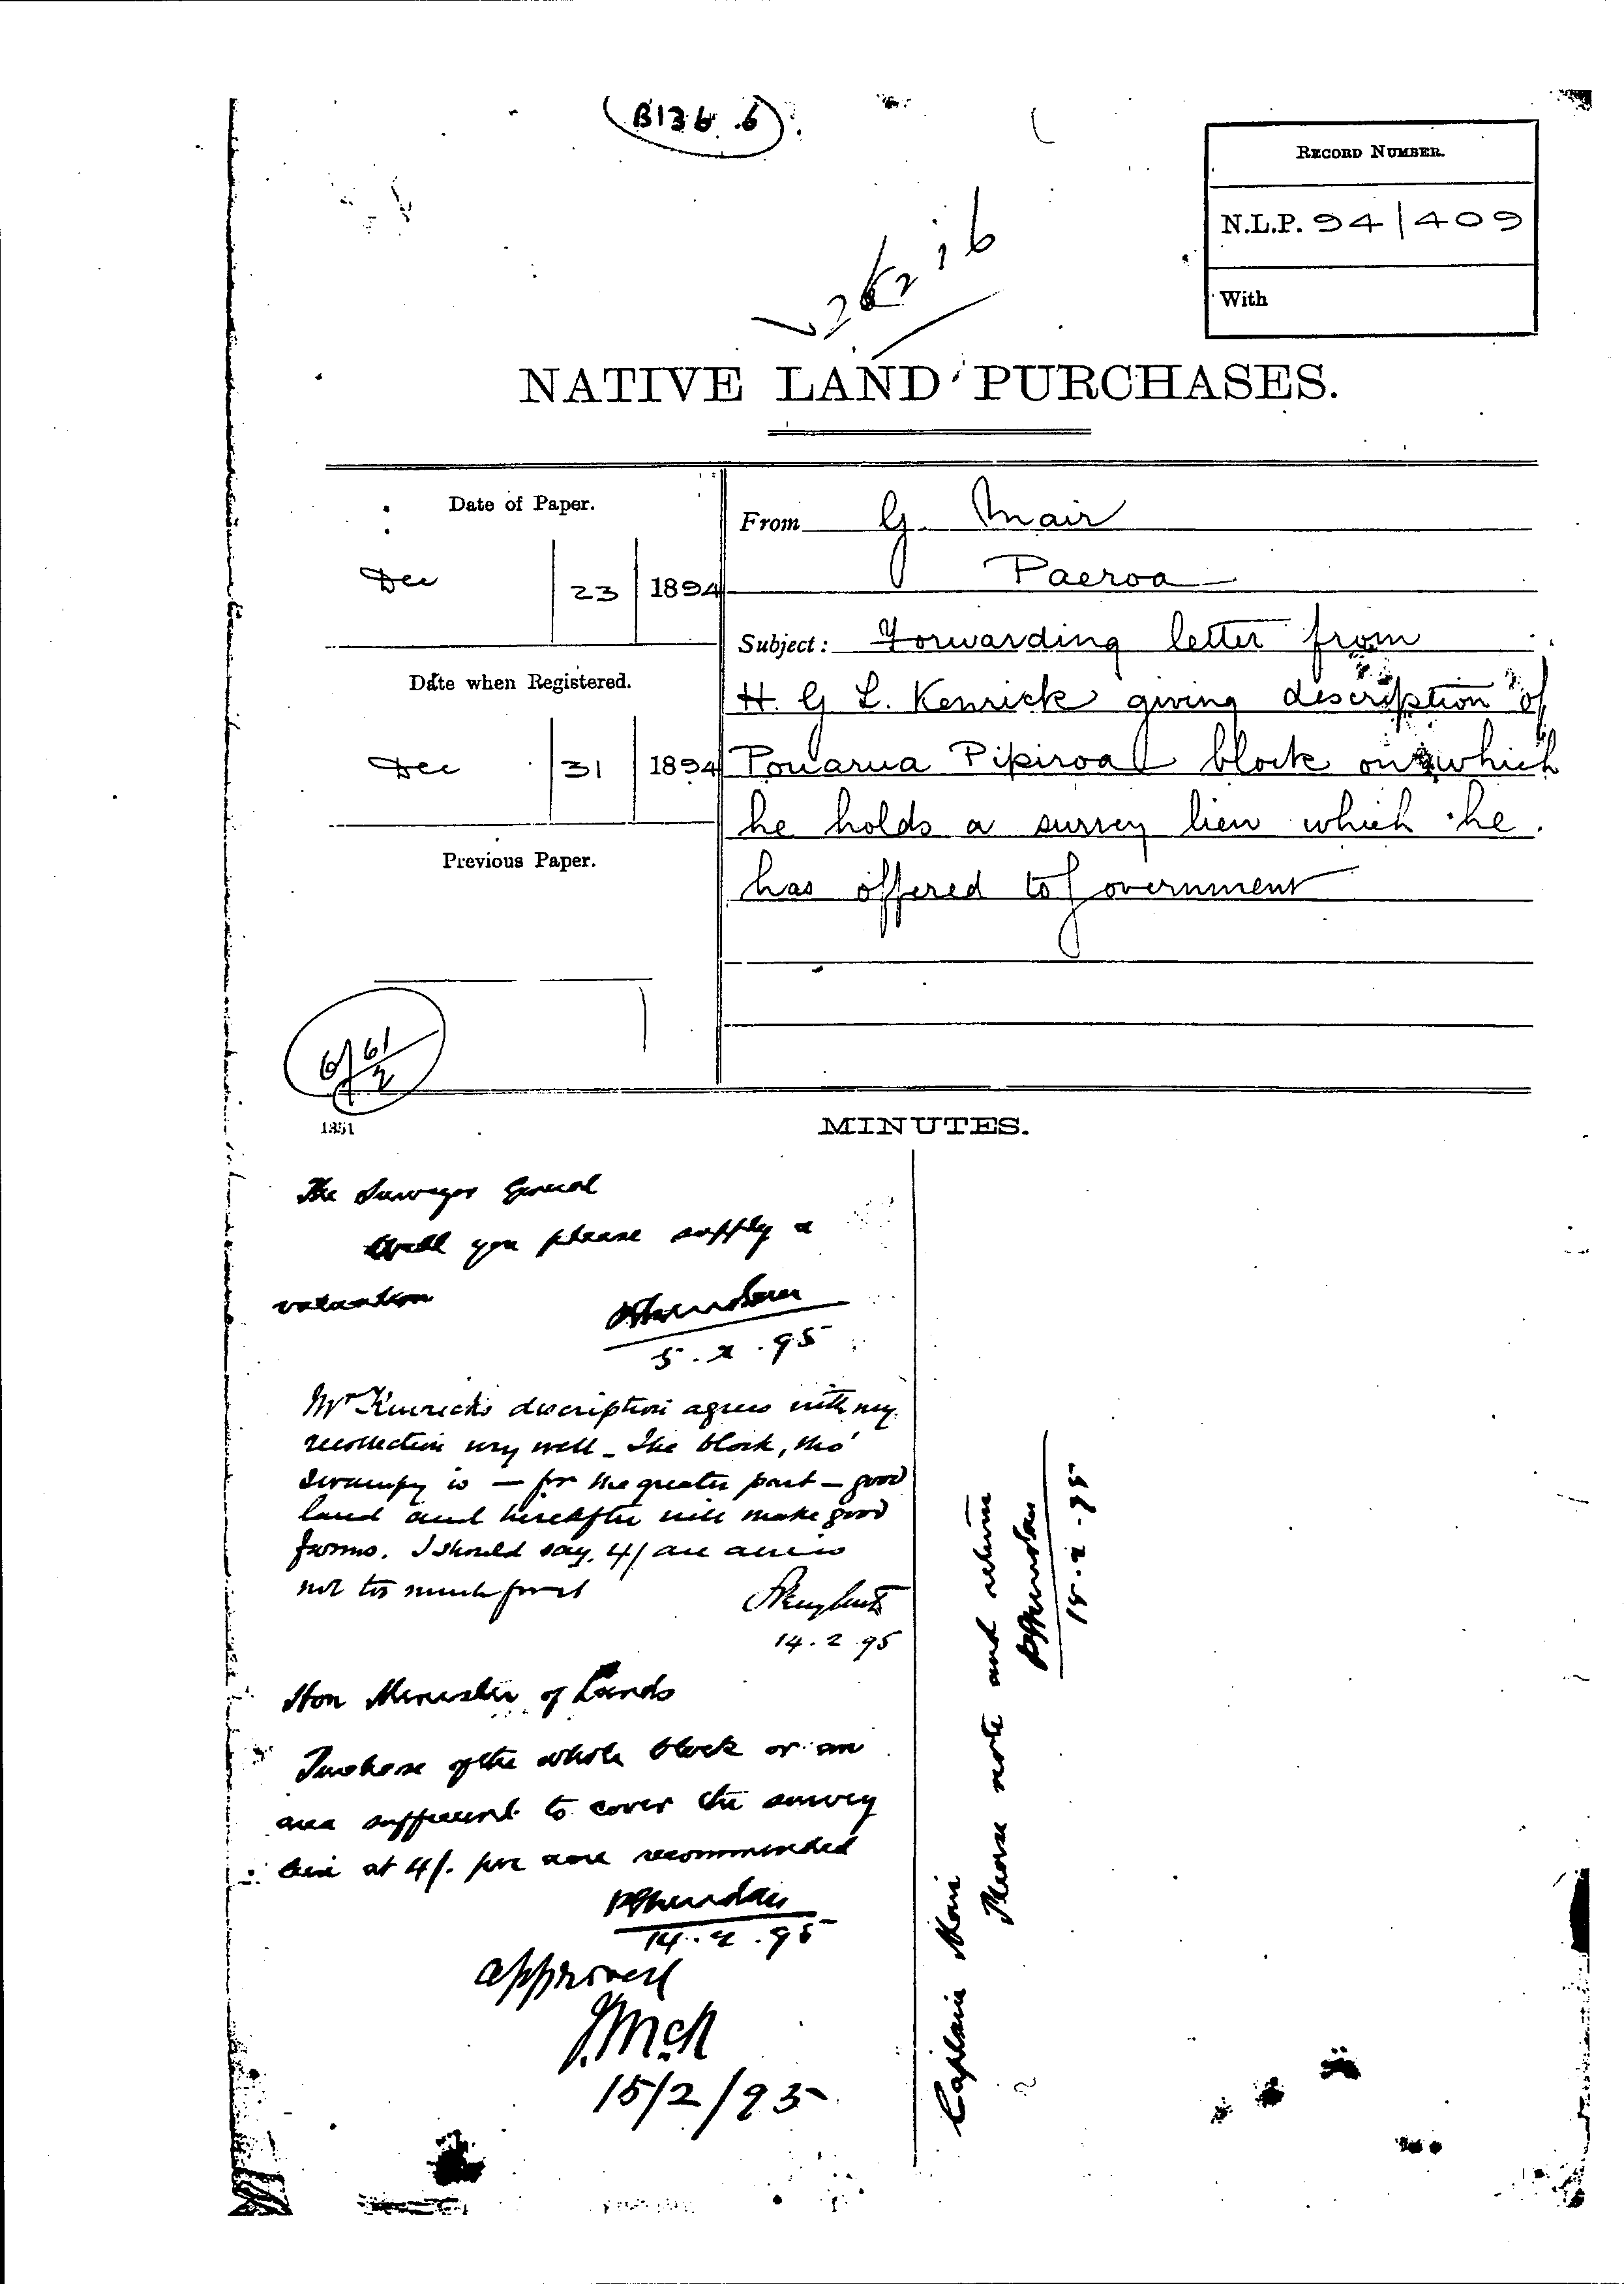 B136.6
RECORD NUMBER.
N.L.P. 94/409
With
NATIVE LAND PURCHASES.
Date of Paper.
Dec 23 1894
Date when Registered.
Dec 31 1894
Previous Paper.
From G. Mair
Paeroa
Subject: Forwarding letter from
H. G L. Kenrick giving description of
Pouarua Pipiroa block on which
he holds a survey lien which he
has offered to Government
6/61/2
1351
MINUTES.
The Surveyor General
Will you please supply a
valuation
PSheridan
5.2.95
Mr Kenrick's description agrees with my
recollection very well - The block, tho'
swampy is - for the greater part - good
land and hereafter will make good
farms. I should say, 4/ an acre is
not too much for it
14.2.95
Hon Minister of Lands
Purchase of the whole block or an
area sufficient to cover the survey
lien at 4/. per acre recommended
PSheridan
14.2.95
approved
J.McK
15/2/95
Captain Mair
Please note and return
PSheridan
15.2.95